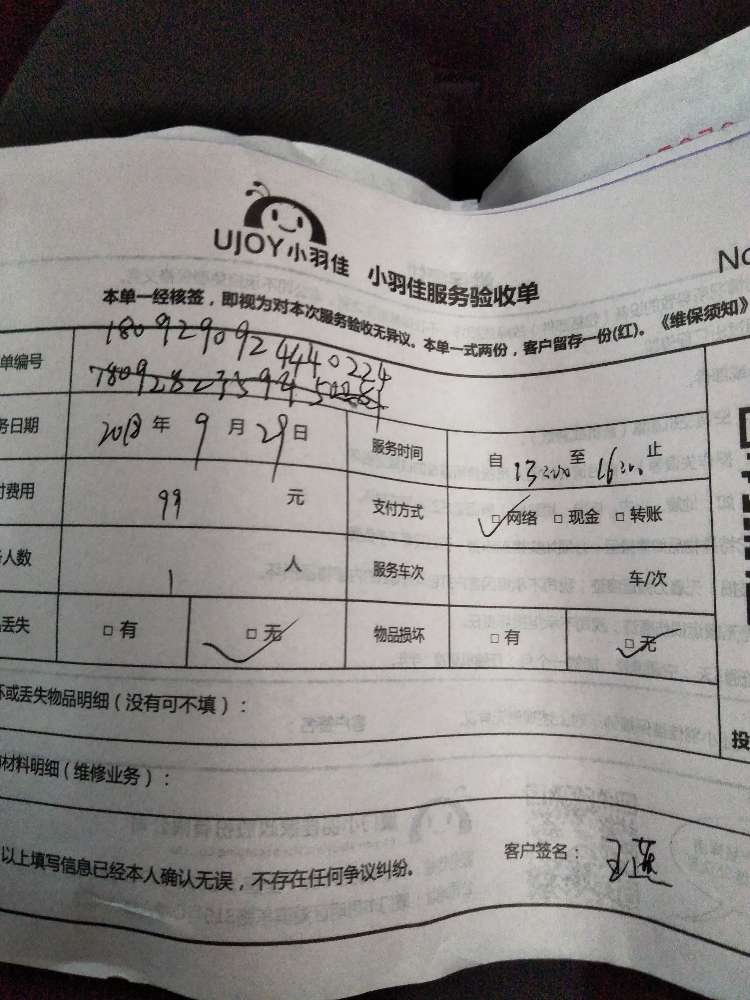 UJOY小羽佳 小羽佳服务验收单
No
本单一经核签，即视为对本次服务验收无异议。本单一式两份，客户留存一份(红)。《维保须知》
单编号 1809290924440224
务日期 2018 年 9 月 29 日 服务时间 自 13:00 至 16:00 止
费用 99 元 支付方式 □网络 □现金 □转账
人数 1 人 服务车次 车/次
丢失 □有 □无 物品损坏 □有 □无
坏或丢失物品明细（没有可不填）：
材料明细（维修业务）：
投
以上填写信息已经本人确认无误，不存在任何争议纠纷。
客户签名：